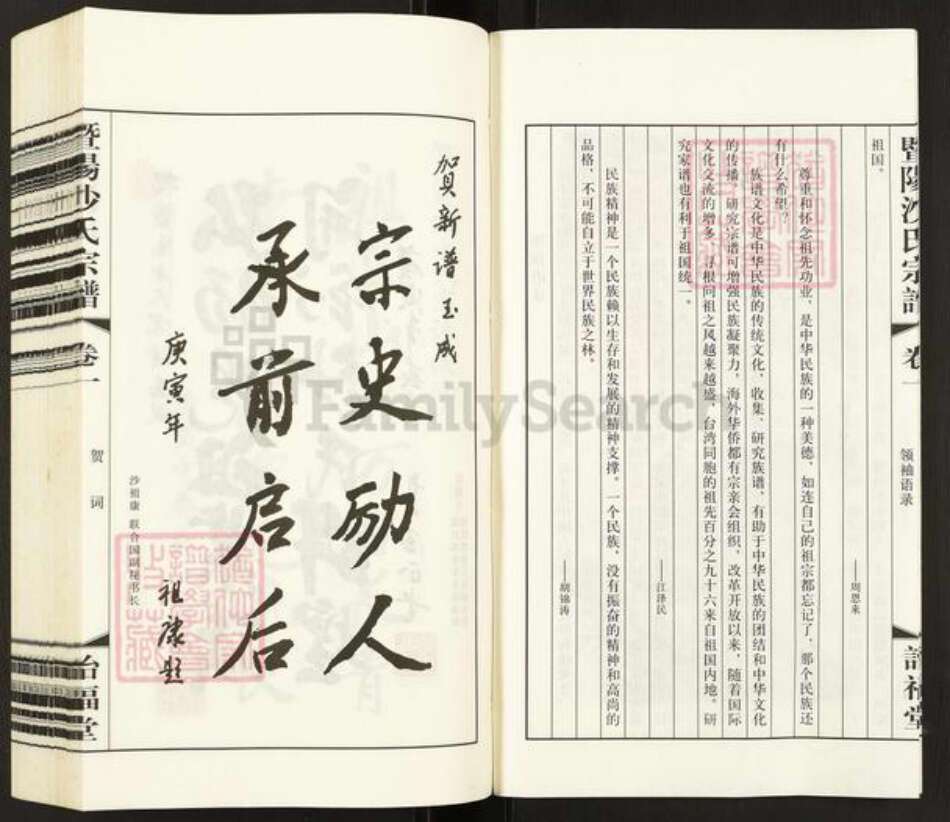 暨陽沙氏宗譜
卷一
领袖语录
詒福堂
祖国。
——周恩来
尊重和怀念祖先功业,是中华民族的一种美德,如连自己的祖宗都忘记了,那个民族还
有什么希望?
族谱文化是中华民族的传统文化,收集、研究族谱,有助于中华民族的团结和中华文化
的传播,研究宗谱可增强民族凝聚力,海外华侨都有宗亲会组织,改革开放以来,随着国际
文化交流的增多,寻根问祖之风越来越盛,台湾同胞的祖先百分之九十六来自祖国内地。研
究家谱也有利于祖国统一。
——江泽民
民族精神是一个民族赖以生存和发展的精神支撑。一个民族,没有振奋的精神和高尚的
品格,不可能自立于世界民族之林。
——胡锦涛
贺新谱玉成
宗史励人
承前启后
庚寅年
祖康题
沙祖康 联合国副秘书长
暨陽沙氏宗譜
卷一
贺词
詒福堂
FamilySearch